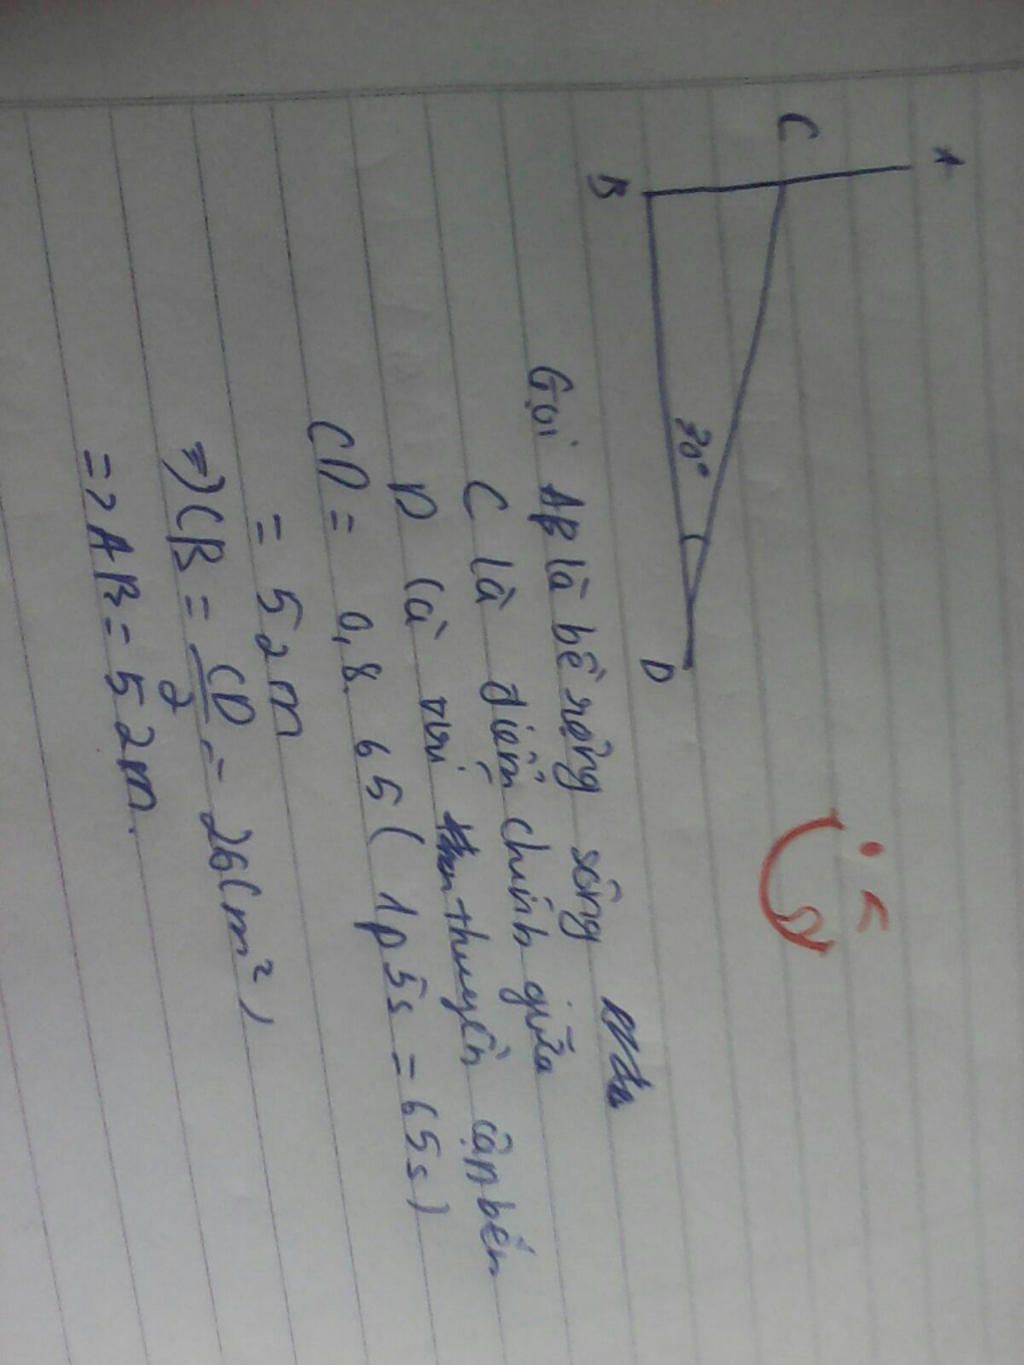 A
C
B
30°
D
Gọi AB là bề rộng sông
C là điểm chính giữa
D là vị trí thuyền cập bến.
CD = 0,8. 65 ( 1p5s = 65s)
= 52m
=> CB = CD/2 = 26(m²)
=> AB = 52m.